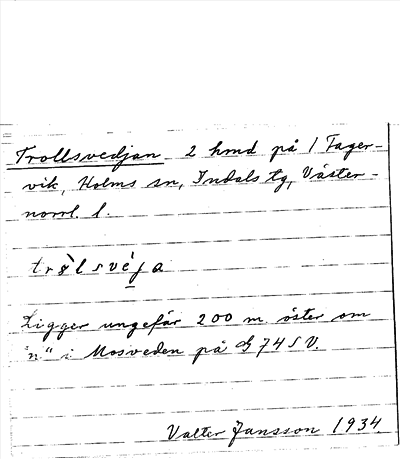 Trollsvedjan 2 hmd på 1 Fager-
vik, Holms sn, Indals tg, Väster-
norrl. l.
tròlsvèja
Ligger ungefär 200 m. öster om
"n" i Mosveden på 74 S V.
Valter Jansson 1934.